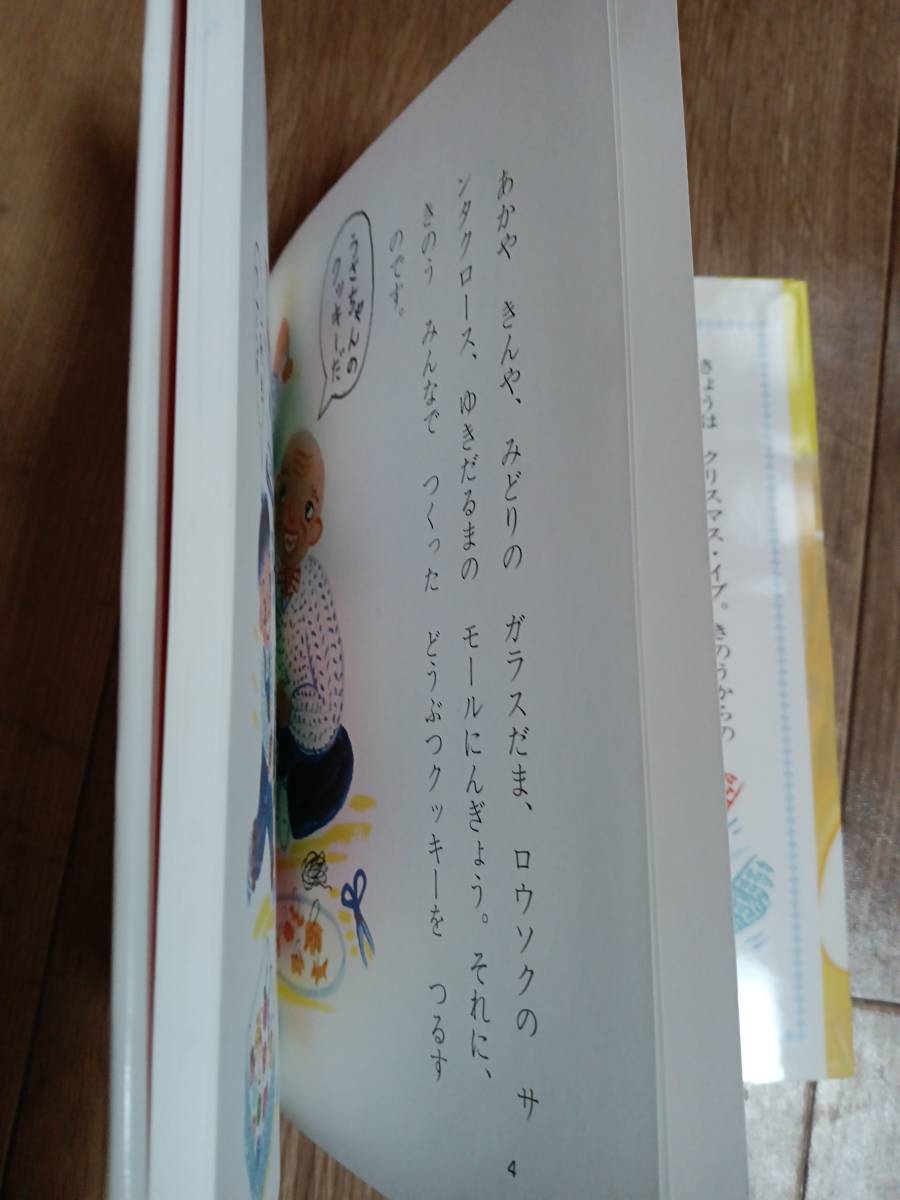 あかや　きんや、みどりの　ガラスだま、ロウソクの　サ
ンタクロース、ゆきだるまの　モールにんぎょう。それに、
きのう　みんなで　つくった　どうぶつクッキーを　つるす
のです。
うさちゃんの
クッキーだ
4
きょうは　クリスマス・イブ。きのうからの